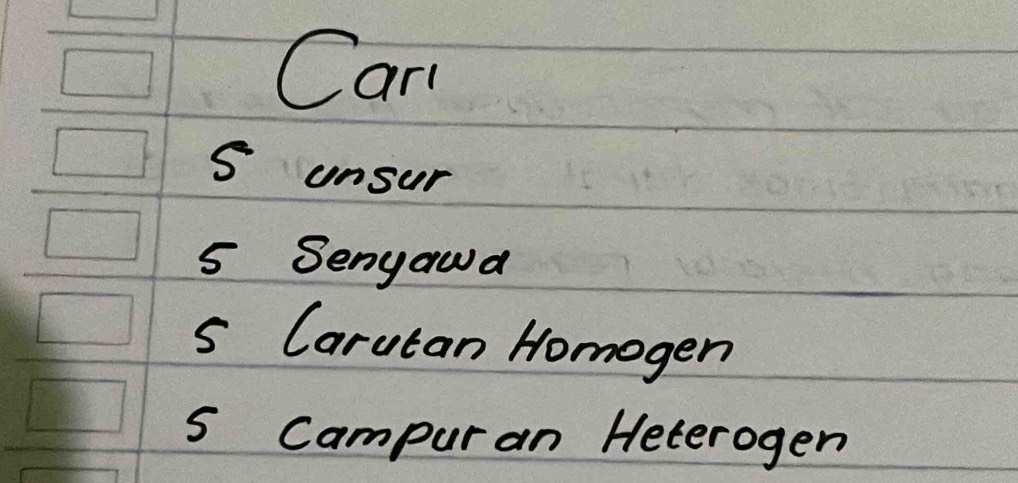 Cari
5 unsur
5 Senyawa
5 Larutan Homogen
5 Campuran Heterogen